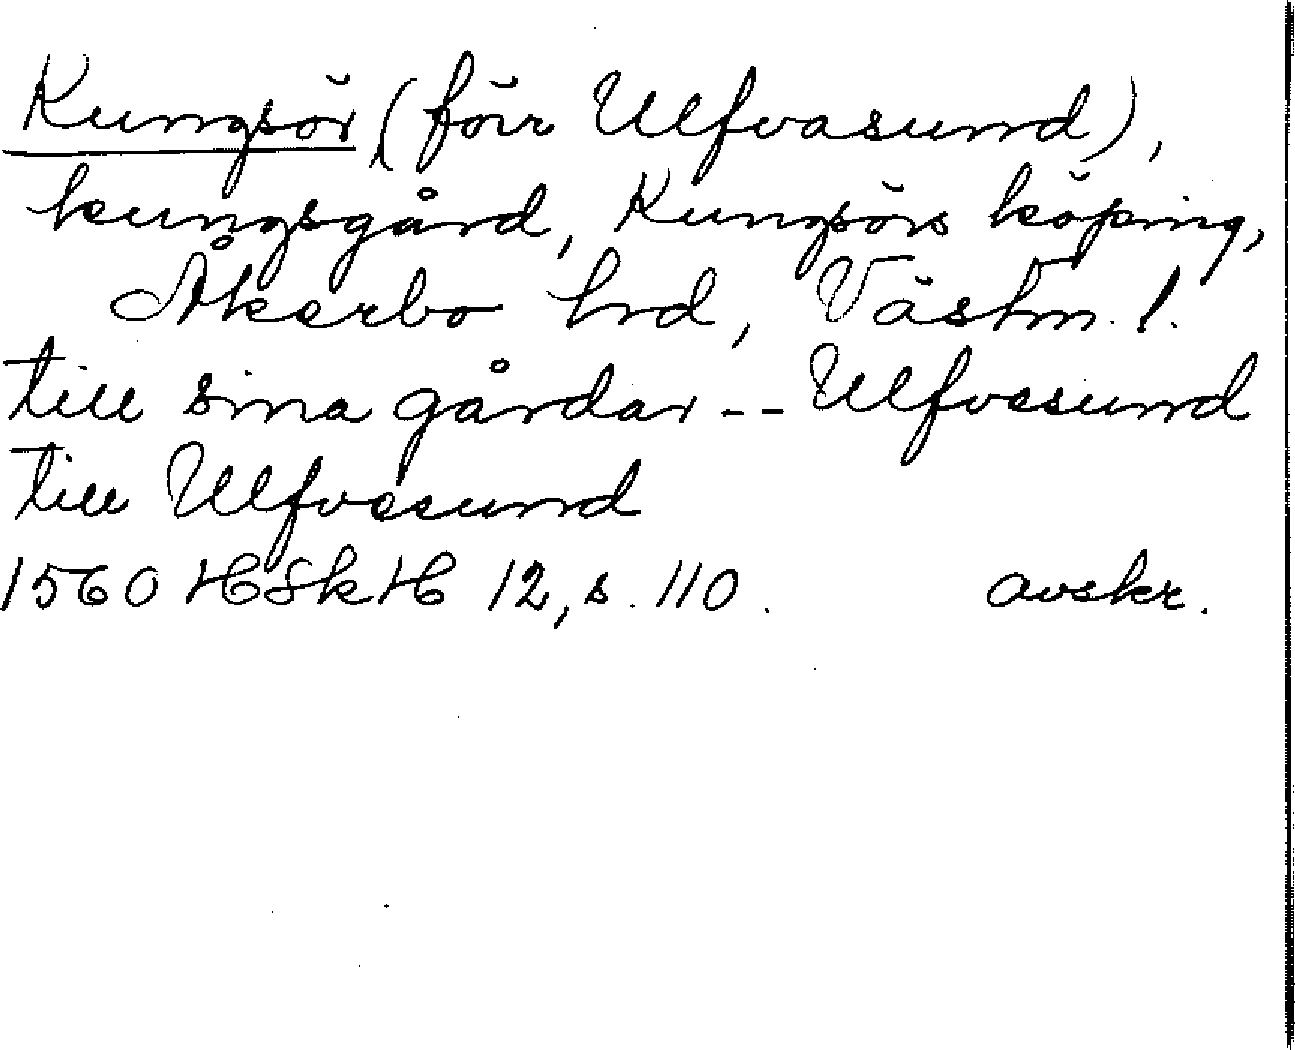 Kungsör (förr Ulfvasund),
kungsgård, Kungsörs köping,
Åkerbo hd, Västm. l.
till sina gårdar -- Ulfvesund
till Ulfvesund
1560 HSkH 12, s. 110. avskr.